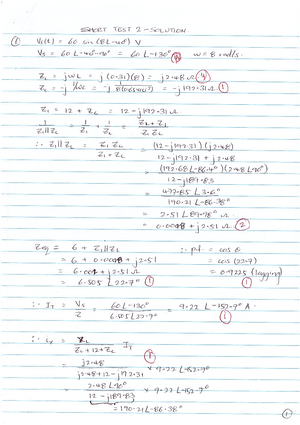 SHORT TEST 2 - SOLUTION
① Vs(t) = 60 sin (8t-40°) V
Vs = 60 ∠-40°-90° = 60 ∠-130° w = 8 rad/s.
ZL = jwL = j (0.31)(8) = j2.48 Ω
= -j192.31 Ω ①
Z1 = 12 + Zc = 12 - j192.31 Ω
1/(Z1//ZL) = 1/Z1 + 1/ZL = (ZL + Z1)/(Z1 ZL)
∴ Z1//ZL = Z1 ZL/(Z1 + ZL) = (12 - j192.31)(j2.48)/(12 - j192.31 + j2.48)
= (192.68 ∠-86.4°)(2.48 ∠90°)/(12 - j189.83)
= 477.85 ∠3.6°/190.21 ∠-86.38°
= 2.51 ∠89.98° Ω
= 0.0009 + j2.51 Ω ②
Zeq = 6 + Z1//ZL ∴ pf = cos θ
= 6 + 0.0009 + j2.51 = cos (22.7)
= 6.001 + j2.51 Ω = 0.9225 (lagging)
= 6.505 ∠22.7° ① ①
∴ IT = Vs/Z = 60∠-130°/6.505∠22.7° = 9.22 ∠-152.7° A.
①
∴ = ZL/(Z1 + 12 + Zc) IT
= j2.48/(j2.48 + 12 - j192.31) × 9.22 ∠-152.7°
= 2.48 ∠90°/(12 - j189.83) × 9.22 ∠-152.7°
= 190.21 ∠-86.38°